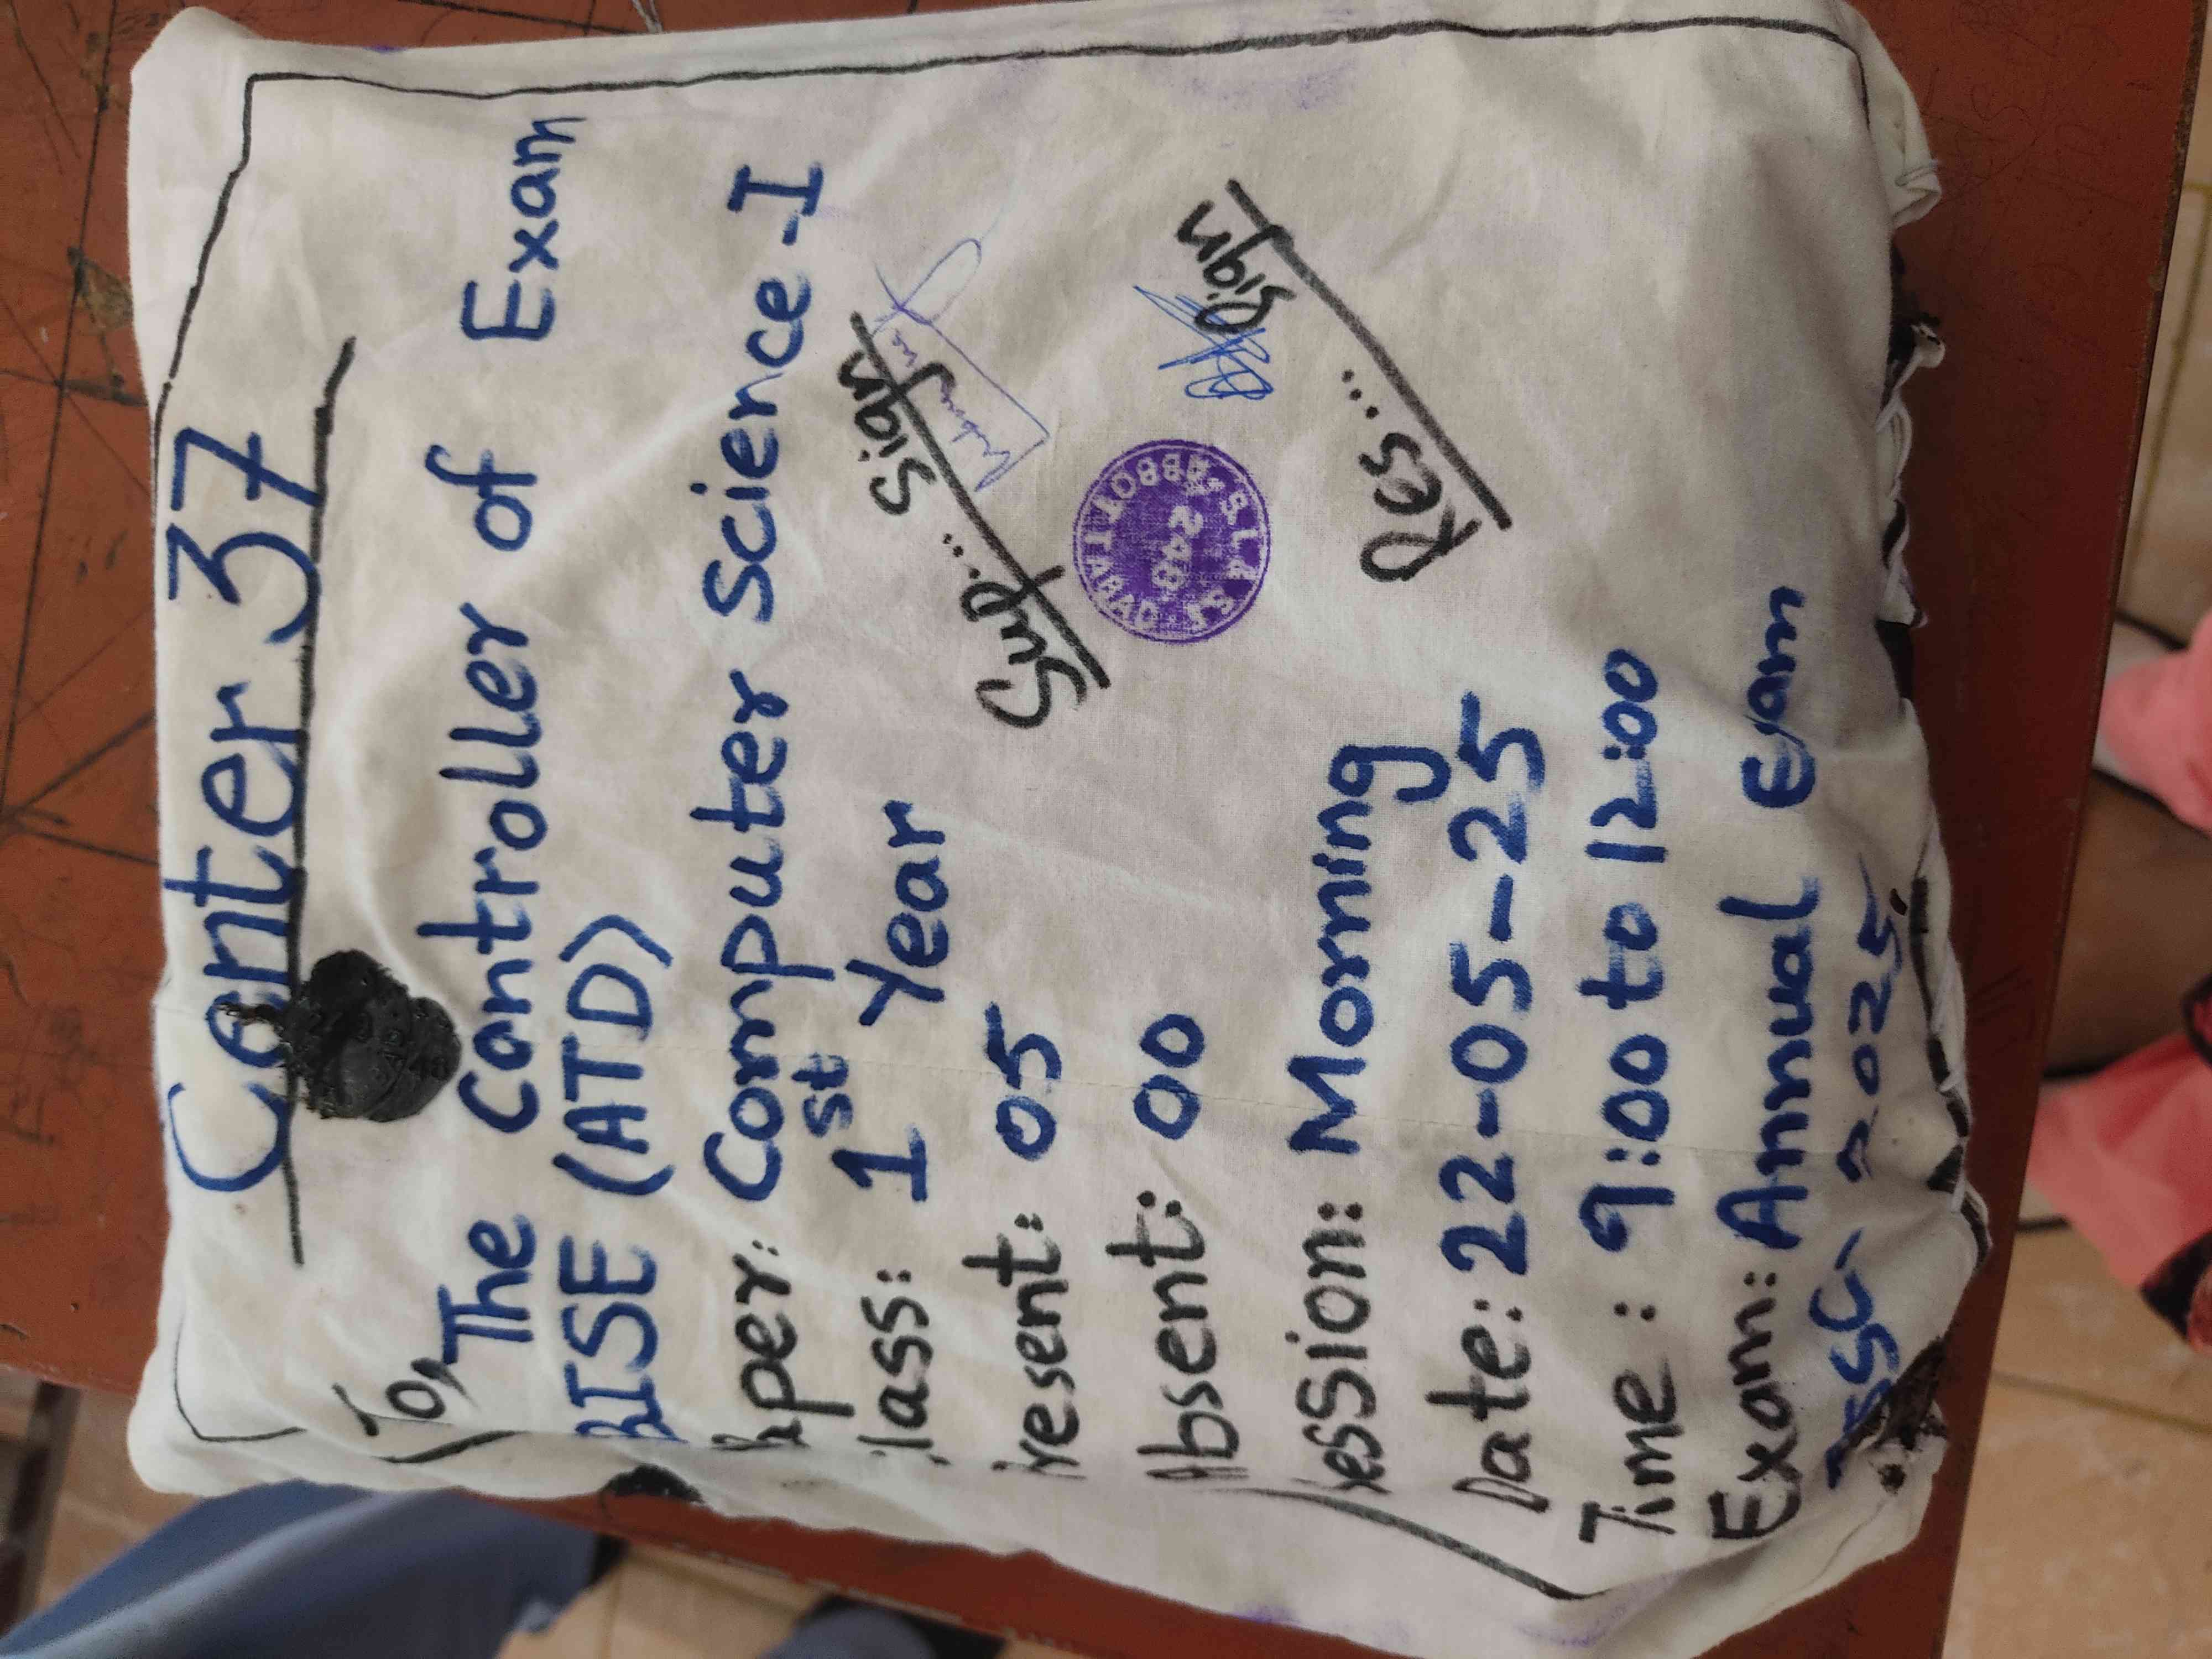 Center 37
To,
The Controller of Exam
BISE (ATD)
aper: Computer Science-I
lass: 1st Year
Present: 05
Absent: 00
Session: Morning
Date: 22-05-25
Time: 9:00 to 12:00
Exam: Annual Exam
SSC- 2025
Sup... Sign
Res... Sign
ABBOTTABAD
240